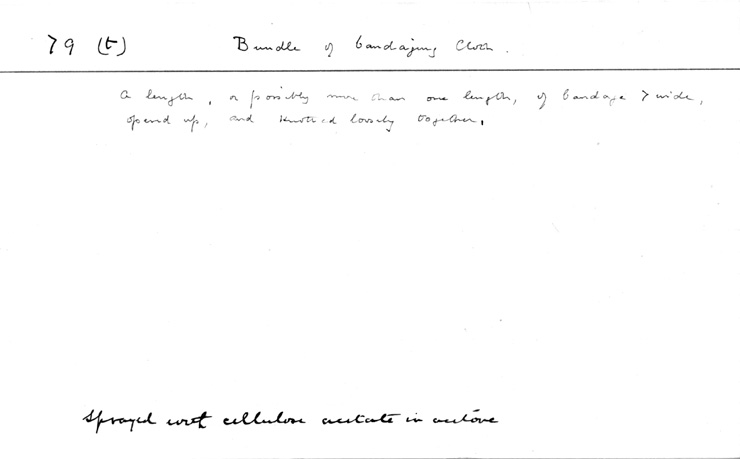 79 (t) Bundle of bandaging cloth.
A length, or possibly more than one length, of bandage 7 wide,
opened up, and knotted loosely together.
Sprayed with cellulose acetate in acetone